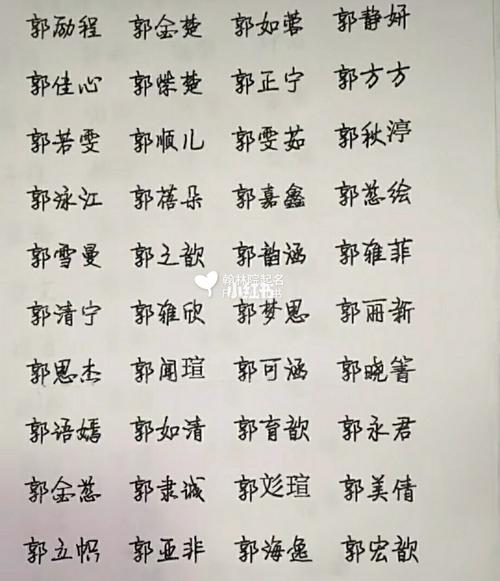 郭励程 郭金楚 郭如蓉 郭静妍
郭佳心 郭荣楚 郭正宁 郭方方
郭若雯 郭顺儿 郭雯茹 郭秋渟
郭泳江 郭蓓朵 郭嘉鑫 郭慈绘
郭雪曼 郭之歆 郭韵涵 郭雅菲
翰林院起名
小红书
郭清宁 郭雅欣 郭梦思 郭丽新
郭思杰 郭闻瑄 郭可涵 郭晓箐
郭语嫣 郭如清 郭育歆 郭永君
郭金慈 郭隶诚 郭彣瑄 郭美倩
郭立帜 郭亚非 郭海逸 郭宏歆